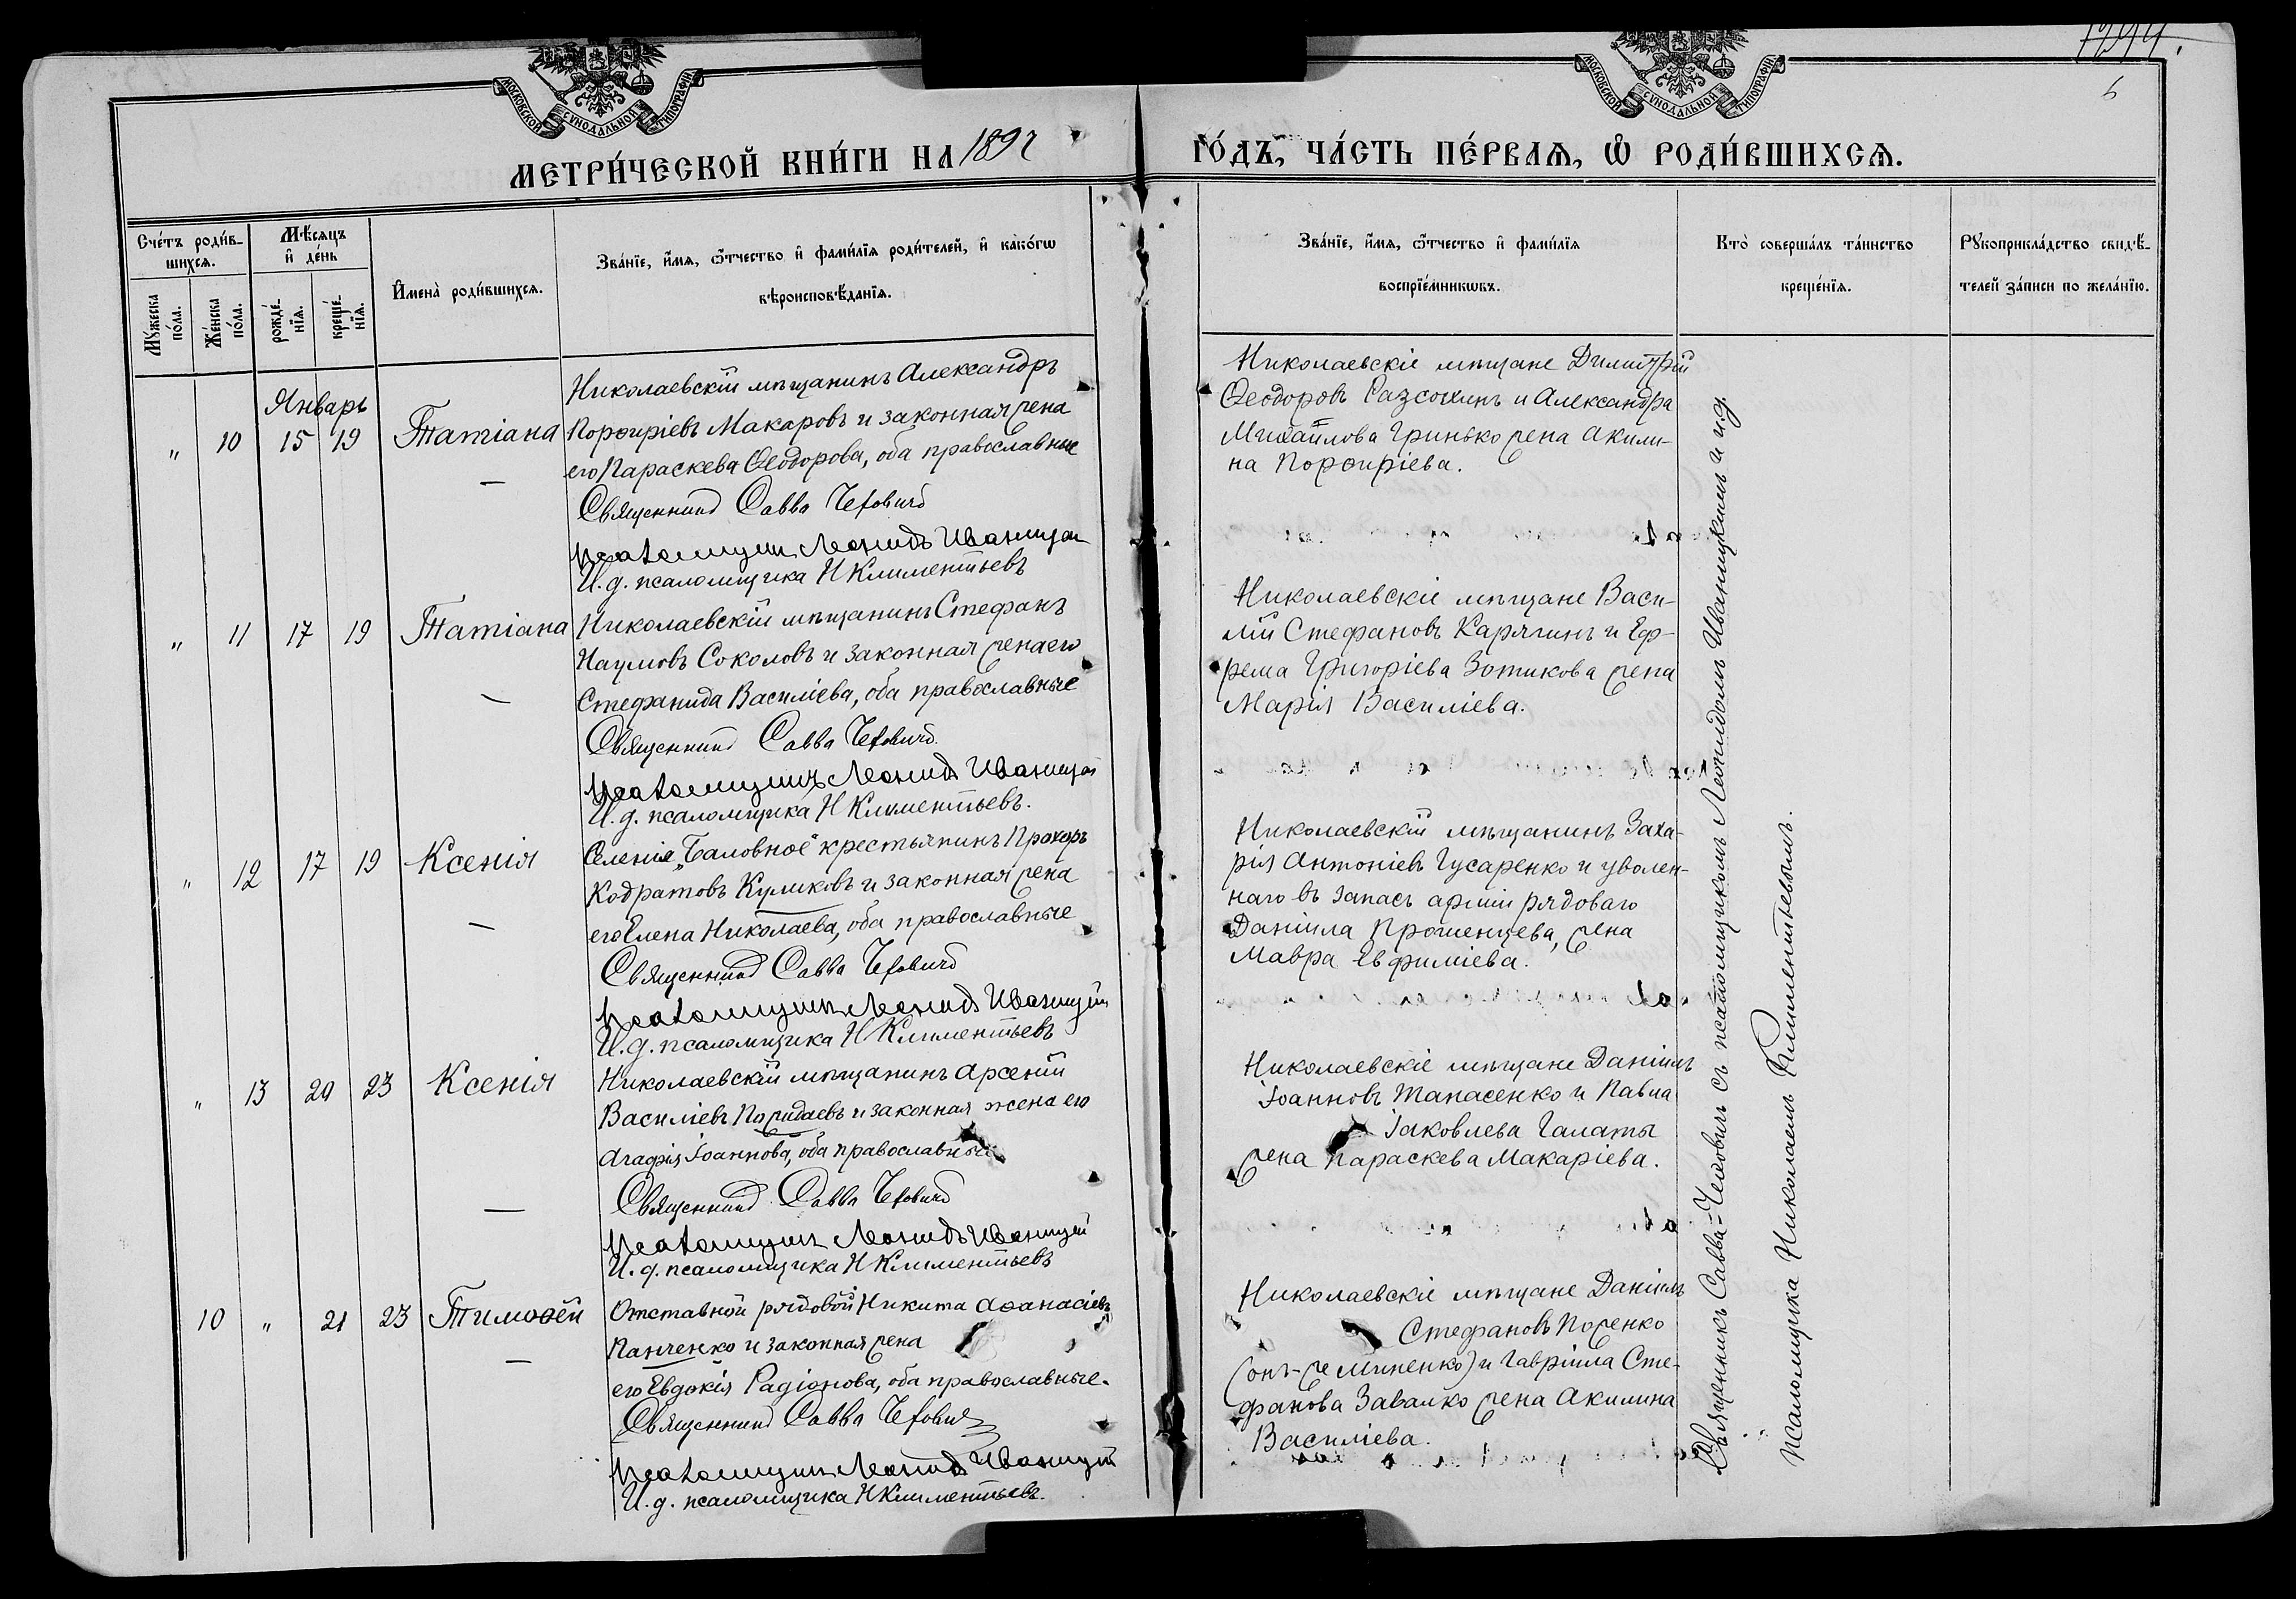 1294.
6
МОСКОВСКОЙ СѴНОДАЛЬНОЙ ТИПОГРАФІИ
МОСКОВСКОЙ СѴНОДАЛЬНОЙ ТИПОГРАФІИ
МЕТРИ́ЧЕСКОЙ КНИ́ГИ НА 1892
ГО́ДЪ, ЧА́СТЬ ПЕ́РВАѦ, Ѡ҆ РОДИ́ВШИХСѦ.
Сче́тъ роди́в-
шихсѧ.
Мꙋ́жеска
по́ла.
Же́нска
по́ла.
Мѣ́сѧцъ
и҆ де́нь
рожде́-
нїѧ.
креще́-
нїѧ.
И҆мена̀ роди́вшихсѧ.
Зва́нїе, и҆́мѧ, ѻ҆́тчество и҆ фами́лїѧ роди́телей, и҆ како́гѡ
вѣроисповѣ́данїѧ.
Зва́нїе, и҆́мѧ, ѻ҆́тчество и҆ фами́лїѧ
воспрїе́мникѡвъ.
Кто̀ соверша́лъ та́инство
креще́нїѧ.
Рꙋкоприкла́дство свидѣ́-
телей за́писи по жела́нїю.
Январь
" 10 15 19 Татіана
Николаевскій мѣщанинъ Александръ
Порфиріевъ Макаровъ и законная жена
его Параскева Ѳеодорова, оба православные
Священникъ Савва Чехович
Псаломщикъ Леонидъ Иваницкій
И. д. псаломщика Н Климентьевъ
Николаевскіе мѣщане Димитрій
Ѳеодоровъ Разсохинъ и Александра
Михайлова Гринько жена Акили-
на Порфиріева.
" 11 17 19 Татіана
Николаевскій мѣщанинъ Стефанъ
Наумовъ Соколовъ и законная жена его
Стефанида Василіева, оба православные
Священникъ Савва Чехович
Псаломщикъ Леонидъ Иваницкій
И. д. псаломщика Н Климентьевъ.
Николаевскіе мѣщане Васи-
лій Стефановъ Карягинъ и Еф-
рема Григоріева Зотикова жена
Марія Василіева.
" 12 17 19 Ксенія
Селенія „Баловное" крестьянинъ Прохоръ
Кодратовъ Куликовъ и законная жена
его Елена Николаева, оба православные
Священникъ Савва Чехович
Псаломщикъ Леонидъ Иваницкій
И. д. псаломщика Н Климентьевъ
Николаевскій мѣщанинъ Заха-
рія Антоніевъ Гусаренко и уволен-
наго въ запасъ арміи рядоваго
Даніила Прошенцева, жена
Мавра Евфиміева.
" 13 20 23 Ксенія
Николаевскій мѣщанинъ Арсеній
Василіевъ и законная жена его
Агафія Іоаннова, оба православные
Священникъ Савва Чехович
Псаломщикъ Леонидъ Иваницкій
И. д. псаломщика Н Климентьевъ
Николаевскіе мѣщане Даніилъ
Іоанновъ Танасенко и Павла
Іаковлева Галаты
жена Параскева Макаріева.
10 " 21 23 Тимоѳей
Отставной рядовой Никита Аѳанасіевъ
Панченко и законная жена
его Евдокія Радіонова, оба православные.
Священникъ Савва Чехович
Псаломщикъ Леонидъ Иваницкій
И. д. псаломщика Н Климентьевъ.
Николаевскіе мѣщане Даніилъ
Стефановъ
(онъ-же Миненко) и Гавріила Сте-
фанова Завалко жена Акилина
Василіева.
Священникъ Савва Чеховичъ съ псаломщикомъ Леонидомъ Иваницкимъ и и.д.
псаломщика Николаемъ Климентьевымъ.